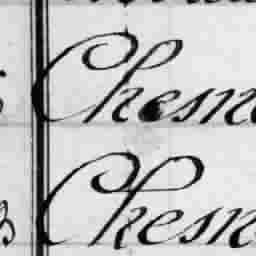 Chesn
Chesn